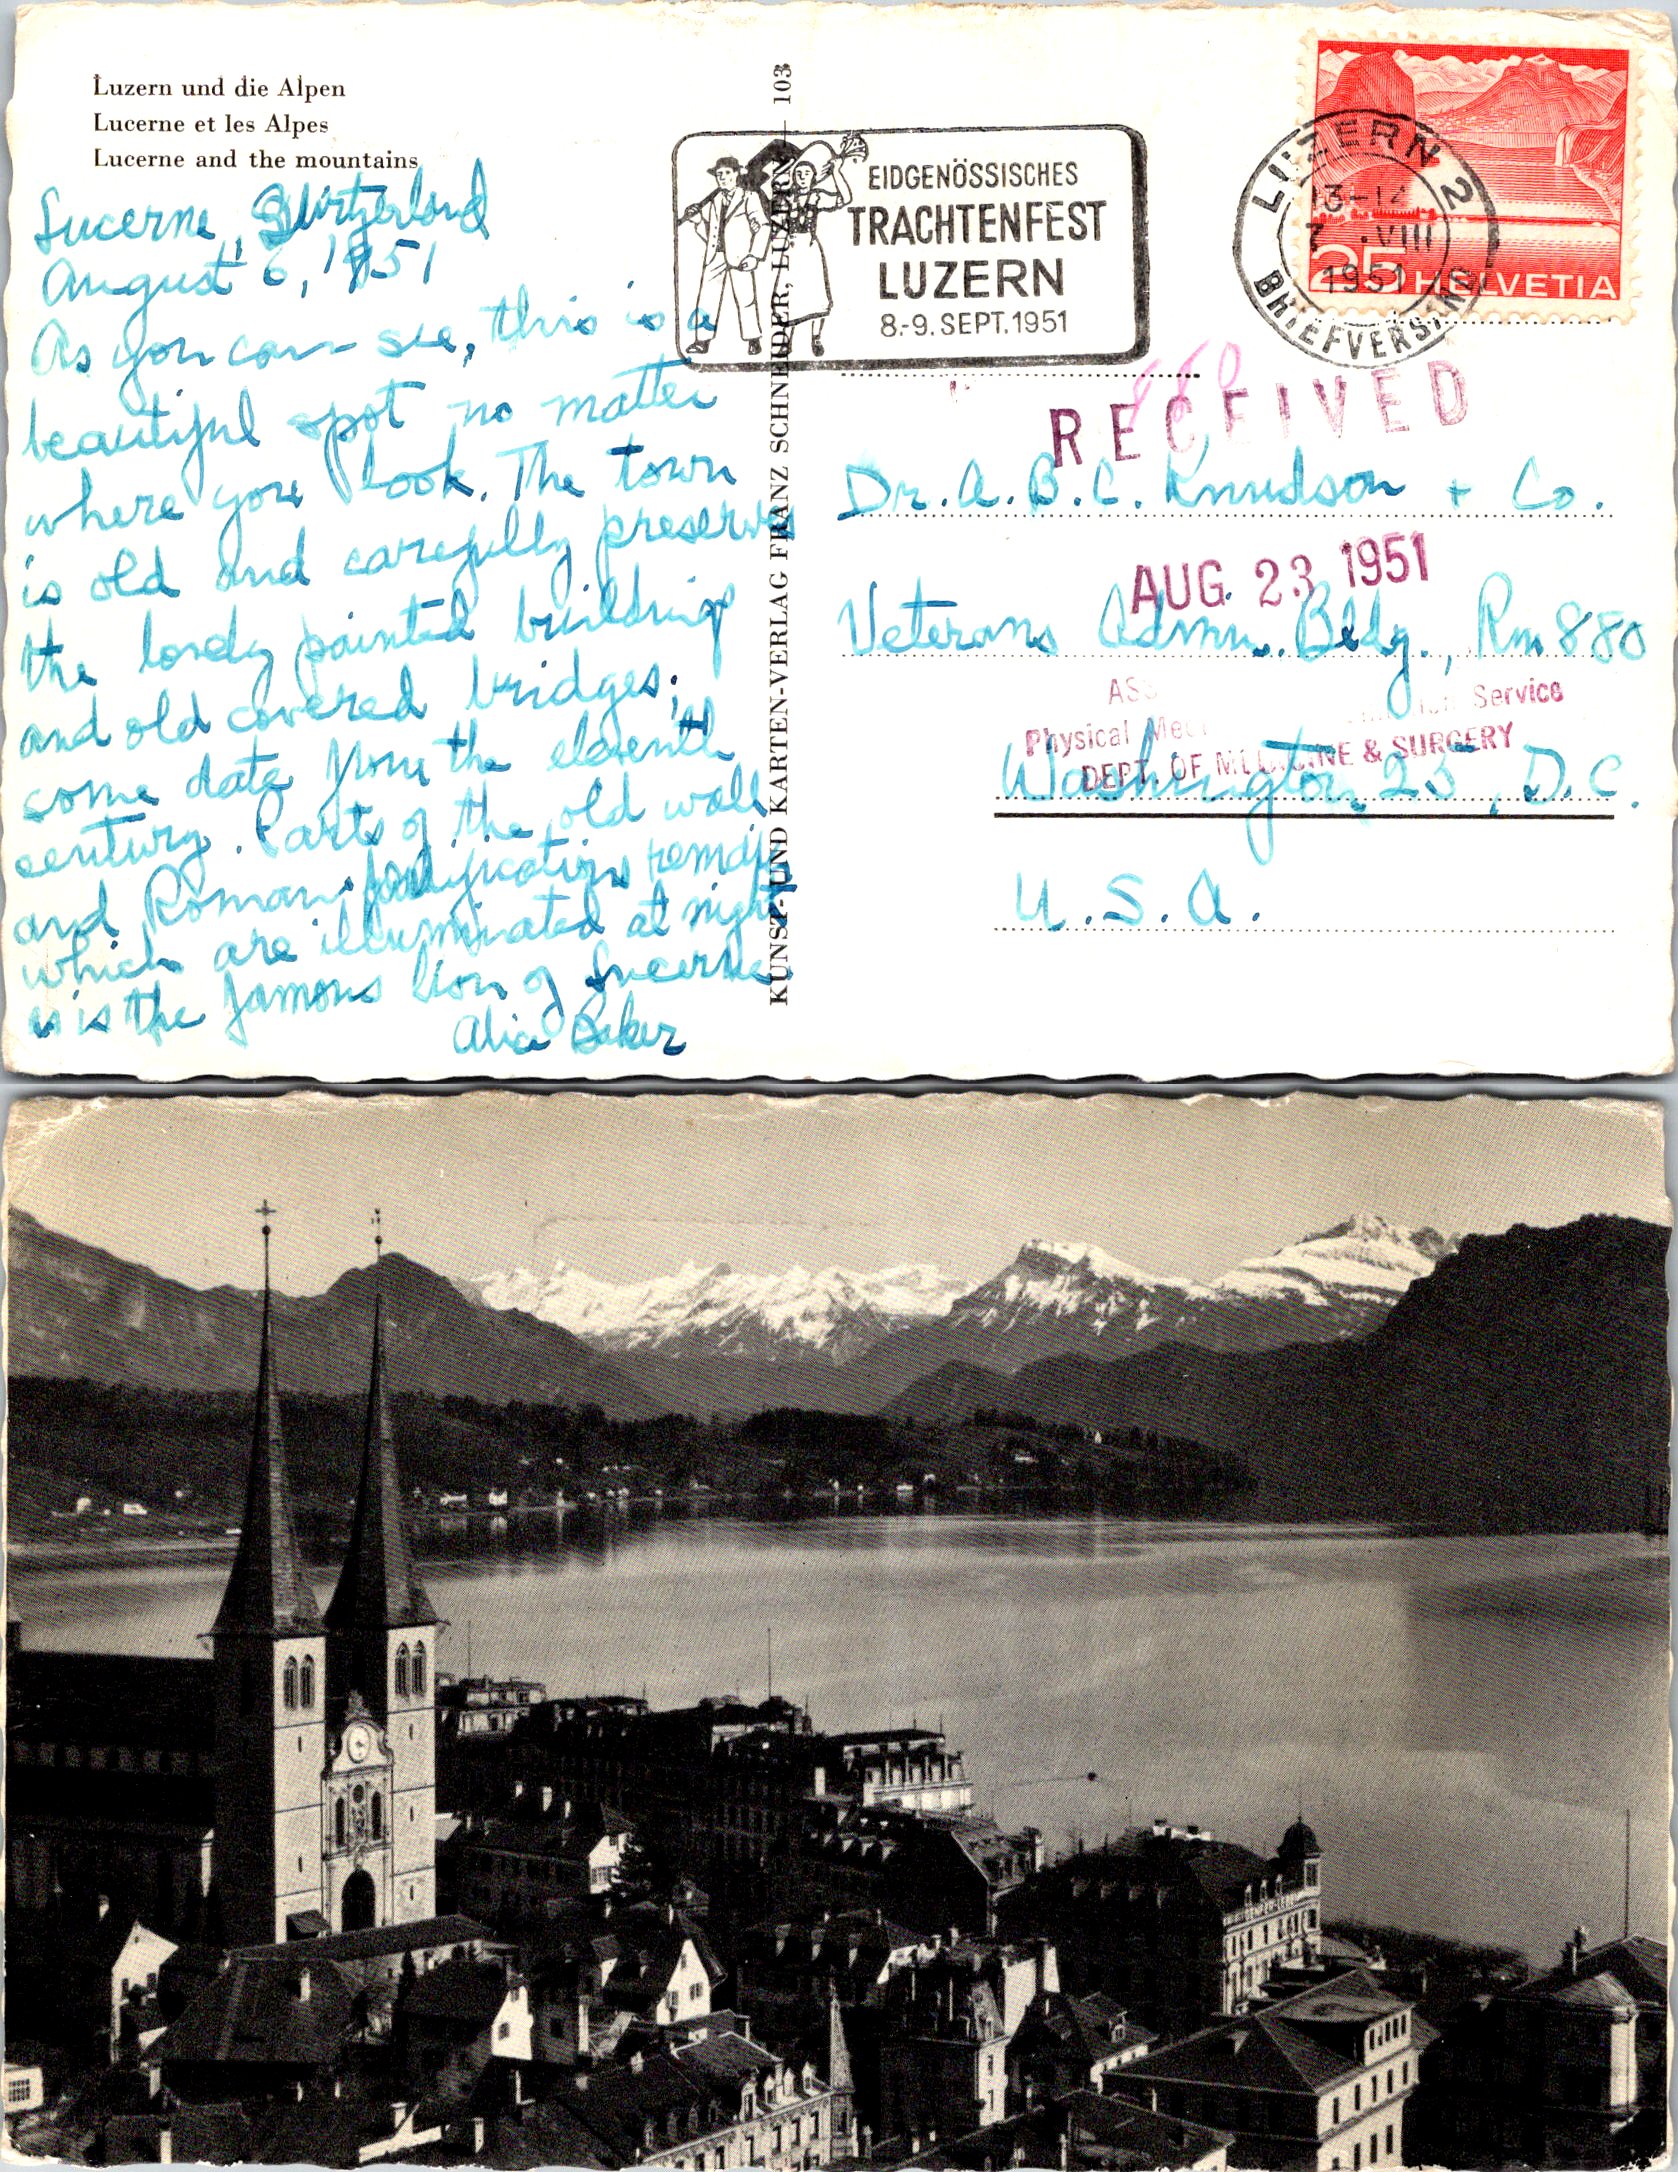 Luzern und die Alpen
Lucerne et les Alpes
Lucerne and the mountains
Lucerne, Switzerland
August 6, 1951
As you can see, this is a
beautiful spot no matter
where you look. The town
is old and carefully preserves
the lovely painted buildings
and old covered bridges;
some date from the eleventh
century. Parts of the old wall
and Roman fortifications remain
which are illuminated at night
as is the famous lion of Lucerne.
Alice Baker
KUNST- UND KARTEN-VERLAG FRANZ SCHNEIDER, LUZERN — 103
EIDGENÖSSISCHES
TRACHTENFEST
LUZERN
8.-9. SEPT. 1951
LUZERN 2
13-14
7. VIII
1951
BRIEFVERSAND
25 HELVETIA
880
RECEIVED
Dr. A. B. C. Knudson + Co.
AUG 23 1951
Veterans Admn. Bldg., Rm 880
Service
Physical
DEPT. OF MEDICINE & SURGERY
Washington 25, D.C.
U.S.A.